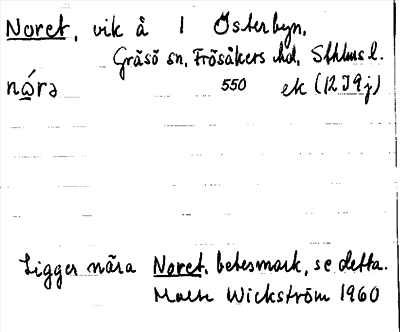 Noret, vik å 1 Österbyn,
Gräsö sn, Frösåkers hd, Sthlms l.
nó̱rə 550 ek (12I9j)
Ligger nära Noret, betesmark, se detta.
Wickström 1960